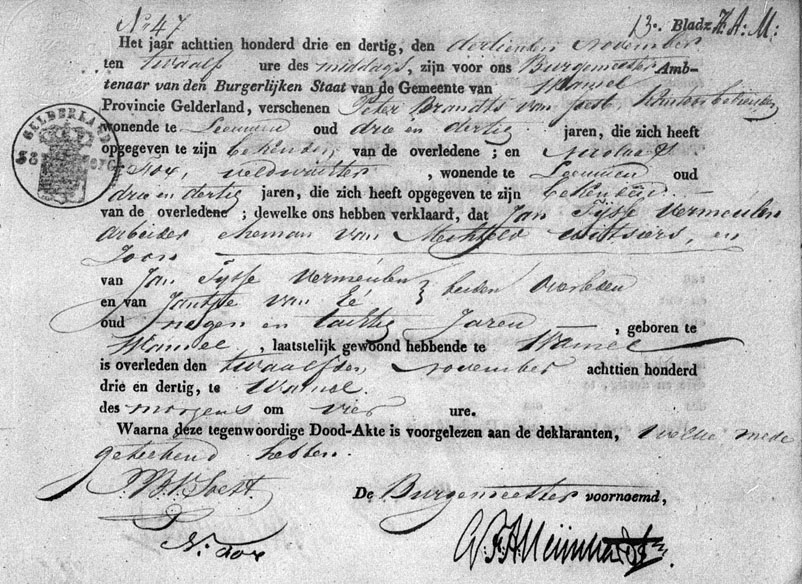 No 47 13e. Bladz. F: A: M:
Het jaar achttien honderd drie en dertig, den dertienden november
ten twaalf ure des middags, zijn voor ons Burgemeester Amb-
tenaar van den Burgerlijken Staat van de Gemeente van Wamel
Provincie Gelderland, verschenen Peter Brandts van Soest, Kantoorbediende
wonende te Leeuwen oud drie en dertig jaren, die zich heeft
opgegeven te zijn bekende, van de overledene; en Nicolaas
Fox, veldwachter, wonende te Leeuwen oud
drie en dertig jaren, die zich heeft opgegeven te zijn bekende
van de overledene; dewelke ons hebben verklaard, dat Jan Tijsse Vermeulen
arbeider eheman van Mechteld en
Zoon
van Jan Tijsse Vermeulen } beiden overleden
en van Jantje van Eé
oud negen en tachtig Jaren, geboren te
Wamel, laatstelijk gewoond hebbende te Wamel
is overleden den twaalfden november achttien honderd
drie en dertig, te Wamel
des morgens om vier ure.
Waarna deze tegenwoordige Dood-Akte is voorgelezen aan de deklaranten, welke mede
geteekend hebben.
P.B.V.Soest. De Burgemeester voornoemd,
N: Fox
GELDERLAND